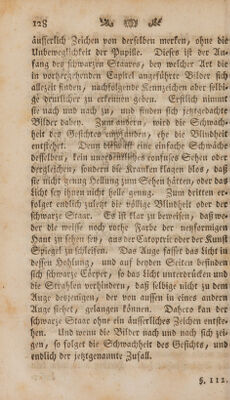 128
äusserlich Zeichen von derselben merken, ohne die
Unbeweglichkeit der Pupille. Dieses ist der An-
fang des schwarzen Staares, bey welcher Art die
in vorhergehenden Capitel angeführte Bilder sich
allezeit finden, nachfolgende Kennzeichen aber selbi-
ge deutlicher zu erkennen geben. Erstlich nimmt
sie nach und nach zu, und finden sich jetztgedachte
Bilder dabey. Zum andern, wird die Schwach-
heit des Gesichtes empfunden, ehe die Blindheit
entstehet. Denn dieses ist eine einfache Schwäche
desselben, kein unordentliches confuses Sehen oder
dergleichen, sondern die Kranken klagen blos, daß
sie nicht genug Hellung zum Sehen hätten, oder das
Licht sey ihnen nicht helle genug. Zum dritten er-
folget endlich die völlige Blindheit oder der
schwarze Staar. Es ist klar zu beweisen, daß we-
der die weisse noch vorhe Farbe der netzförmigen
Haut zu sehen sey, aus der Catoptric oder der Kunst
Spiegel zu schleifen. Das Auge fasset das Licht in
dessen Hohlung, und auf beyden Seiten befinden
sich schwarze Cörper, so das Licht unterdrücken und
die Strahlen verhindern, daß selbige nicht zu dem
Auge desjenigen, der von aussen in eines andern
Auge siehet, gelangen können. Dahero kan der
schwarze Staar ohne ein äusserliches Zeichen entste-
hen. Und wenn die Bilder nach und nach sich zei-
gen, so folget die Schwachheit des Gesichts, und
endlich der jetztgenannte Zufall.
§. 112.